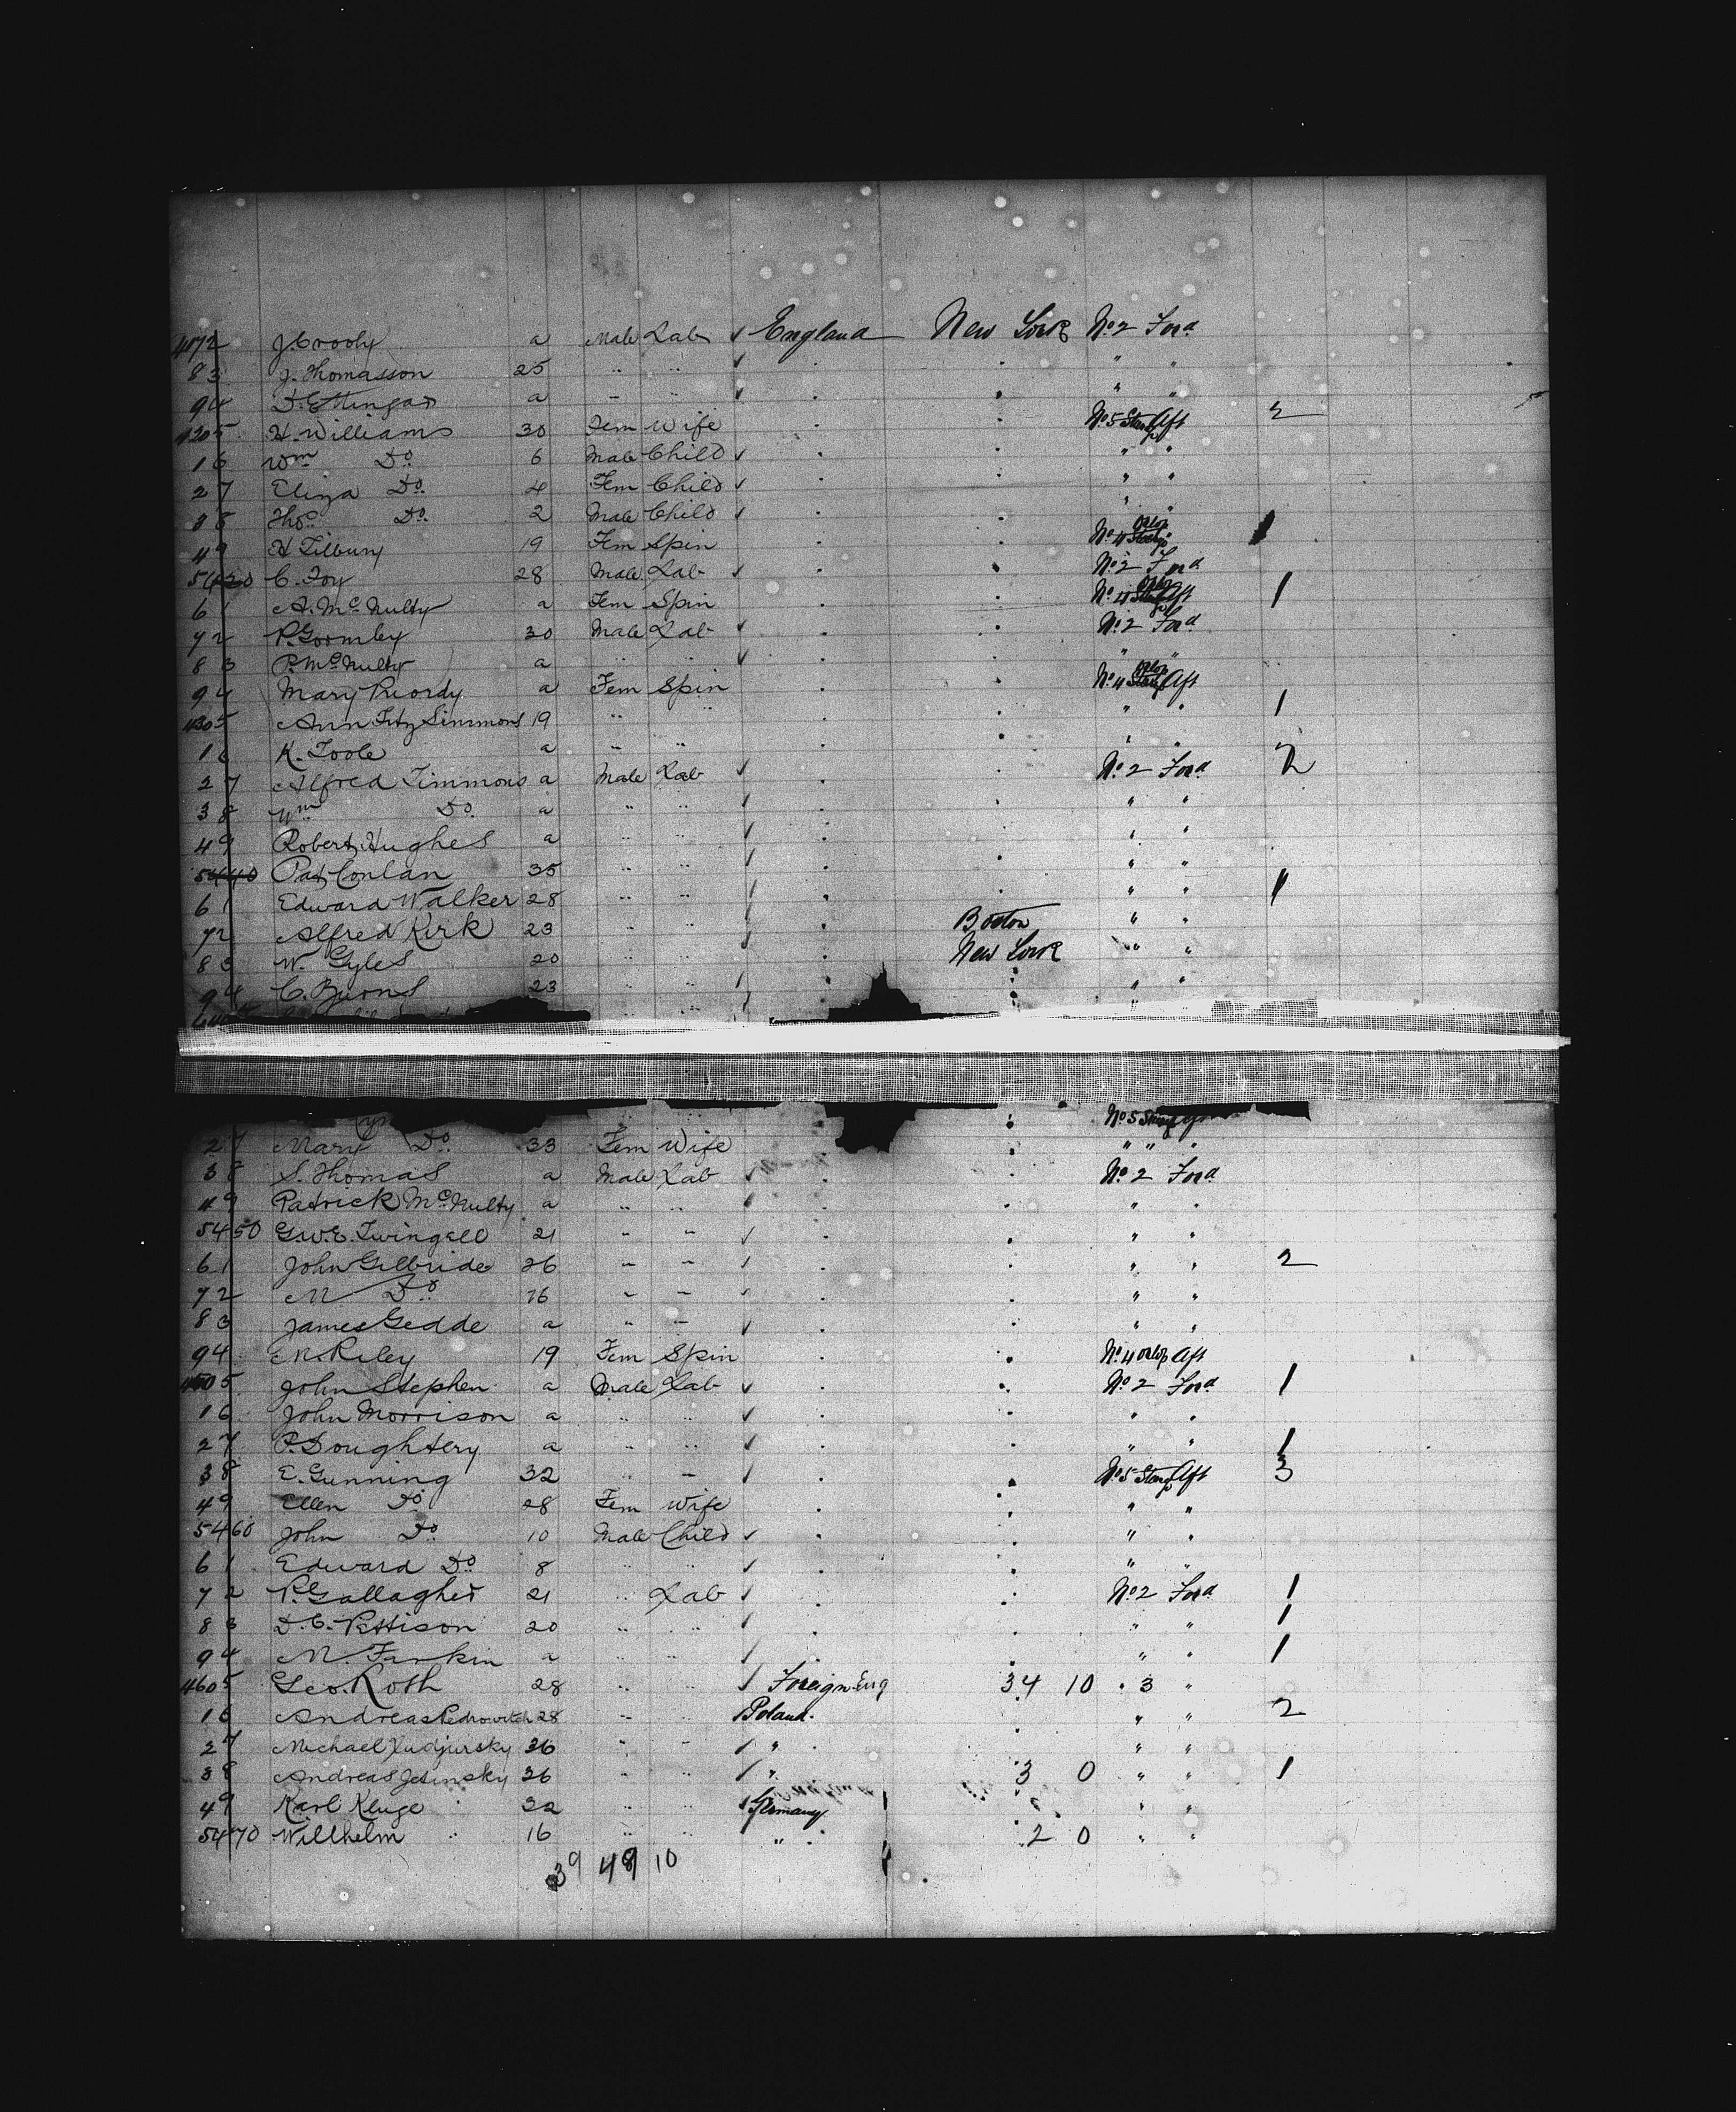 J. Croohy a Male Lab ✓ England New York No. 2 Ford
83 J. Thomasson 25 " " ✓ " "
94 a " " ✓ " "
H. Williams 30 Fem Wife No. 5 Aft 2
16 Wm Do. 6 Male Child ✓ " "
27 Eliza Do. 4 Fem Child ✓ " "
38 Thos. Do. 2 Male Child ✓ " "
49 H Tilbury 19 Fem Spin No. 4 Orlop
54 20 C. Foy 28 Male Lab ✓ No. 2 Ford
61 A. McNulty a Fem Spin No. 4 Orlop Aft 1
72 P. Gormley 30 Male Lab ✓ No. 2 Ford
83 P. McNulty a " " ✓ " "
94 Mary Riordy a Fem Spin No. 4 Orlop Aft
4305 Ann FitzSimmons 19 " " " " 1
16 K. Toole a " " " "
27 Alfred Timmons a Male Lab ✓ No. 2 Ford 2
38 Wm Do. a " " ✓ " "
49 Robert Hughes a " " ✓ " "
5440 Pat Conlan 35 " " ✓ " "
61 Edward Walker 28 " " ✓ " " 1
72 Alfred Kirk 23 " " ✓ Boston " "
83 W. Gyles 20 " " ✓ New York " "
94 C. Burns 23 " " ✓ " "
No. 5
27 Mary Do. 33 Fem Wife " " "
38 S. Thomas a Male Lab ✓ No. 2 Ford
49 Patrick McNulty a " " ✓ " "
5450 G.W.E. Twingell 21 " " ✓ " "
61 John Gilbride 26 " " ✓ " " 2
72 M Do. 16 " " ✓ " "
83 James Gedde a " " ✓ " "
94 M. Riley 19 Fem Spin No. 4 Orlop Aft
5 John Stephen a Male Lab ✓ No. 2 Ford 1
16 John Morrison a " " ✓ " "
27 P. Doughtery a " " ✓ " " 1
38 E. Gunning 32 " " ✓ No. 5 Aft 3
49 Ellen Do. 28 Fem Wife " "
5460 John Do. 10 Male Child ✓ " "
61 Edward Do. 8 " " ✓ " "
72 P. Gallagher 21 " Lab ✓ No. 2 Ford 1
83 D.C. Pattison 20 " " ✓ " " 1
94 M. Farkin a " " ✓ " " 1
4605 Geo. Roth 28 " " ✓ Foreign Eng 34 10 " 3 "
16 Andreas 28 " " Poland. " " 2
27 Michael 36 " " ✓ " " "
38 Andreas Jesinsky 26 " " ✓ " 3 0 " " 1
49 Karl Kluge 22 " " ✓ Germany " "
5470 Willhelm " 16 " " " 2 0 " "
39 49 10